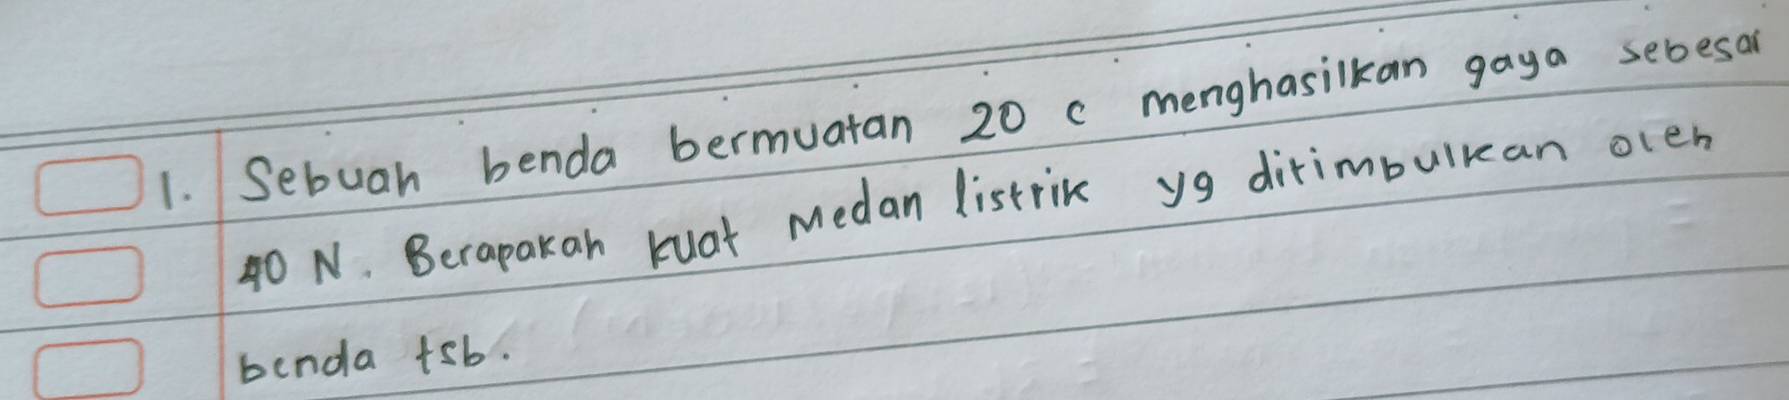 1. Sebuah benda bermuatan 20 c menghasilkan gaya sebesar
40 N. Berapakah kuat Medan listrik yg ditimbulkan oleh
benda tsb.